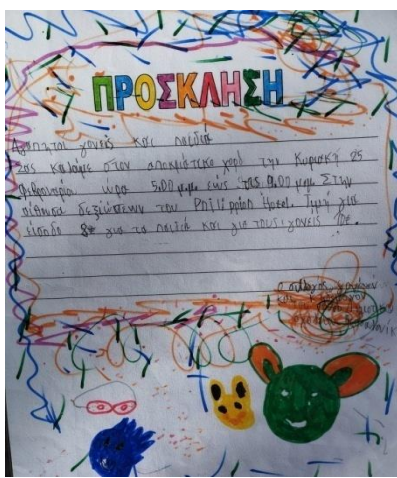 ΠΡΟΣΚΛΗΣΗ
Αγαπητοί γονείς και παιδιά
Σας καλούμε στον αποκριάτικο χορό την Κυριακή 25
Φεβουαρίου ώρα 5:00 μ.μ. έως τις 9:00 μ.μ. Στην
αίθουσα δεξιώσεων του Philippion Hotel. Τιμή για
είσοδο 8€ για τα παιδιά και για τους γονείς 10€.
Ο σύλλογος γονέων